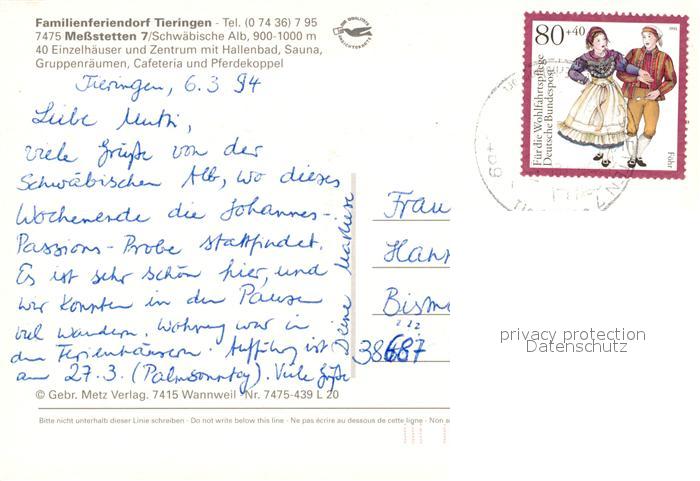 Familienferiendorf Tieringen - Tel. (0 74 36) 7 95
7475 Meßstetten 7/Schwäbische Alb, 900-1000 m
40 Einzelhäuser und Zentrum mit Hallenbad, Sauna,
Gruppenräumen, Cafeteria und Pferdekoppel
Tieringen, 6.3 94
Liebe Mutti,
viele Grüße von der
Schwäbischen Alb, wo dieses
Wochenende die Johannes-
Passions-Probe stattfindet.
Es ist sehr schön hier, und
wir konnten in den Pausen
viel wandern. Wohnung war in
den Ferienhäusern. Aufführg ist
am 27.3. (Palmsonntag). Viele Grüße
Deine
© Gebr. Metz Verlag. 7415 Wannweil - Nr. 7475-439 L 20
Bitte nicht unterhalb dieser Linie schreiben - Do not write below this line - Ne pas écrire au dessous de cette ligne - Non s
80+40
Für die Wohlfahrtspflege
Deutsche Bundespost
Föhr
Frau
Han
Bism
38687
privacy protection
Datenschutz